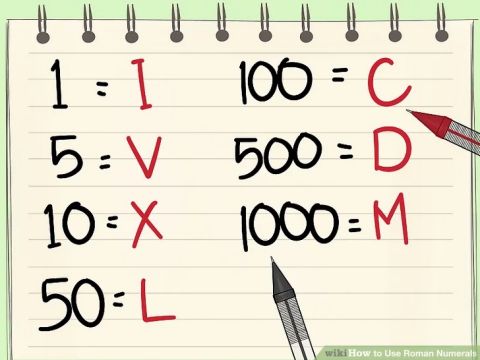 1 = I
5 = V
10 = X
50 = L
100 = C
500 = D
1000 = M
wikiHow to Use Roman Numerals